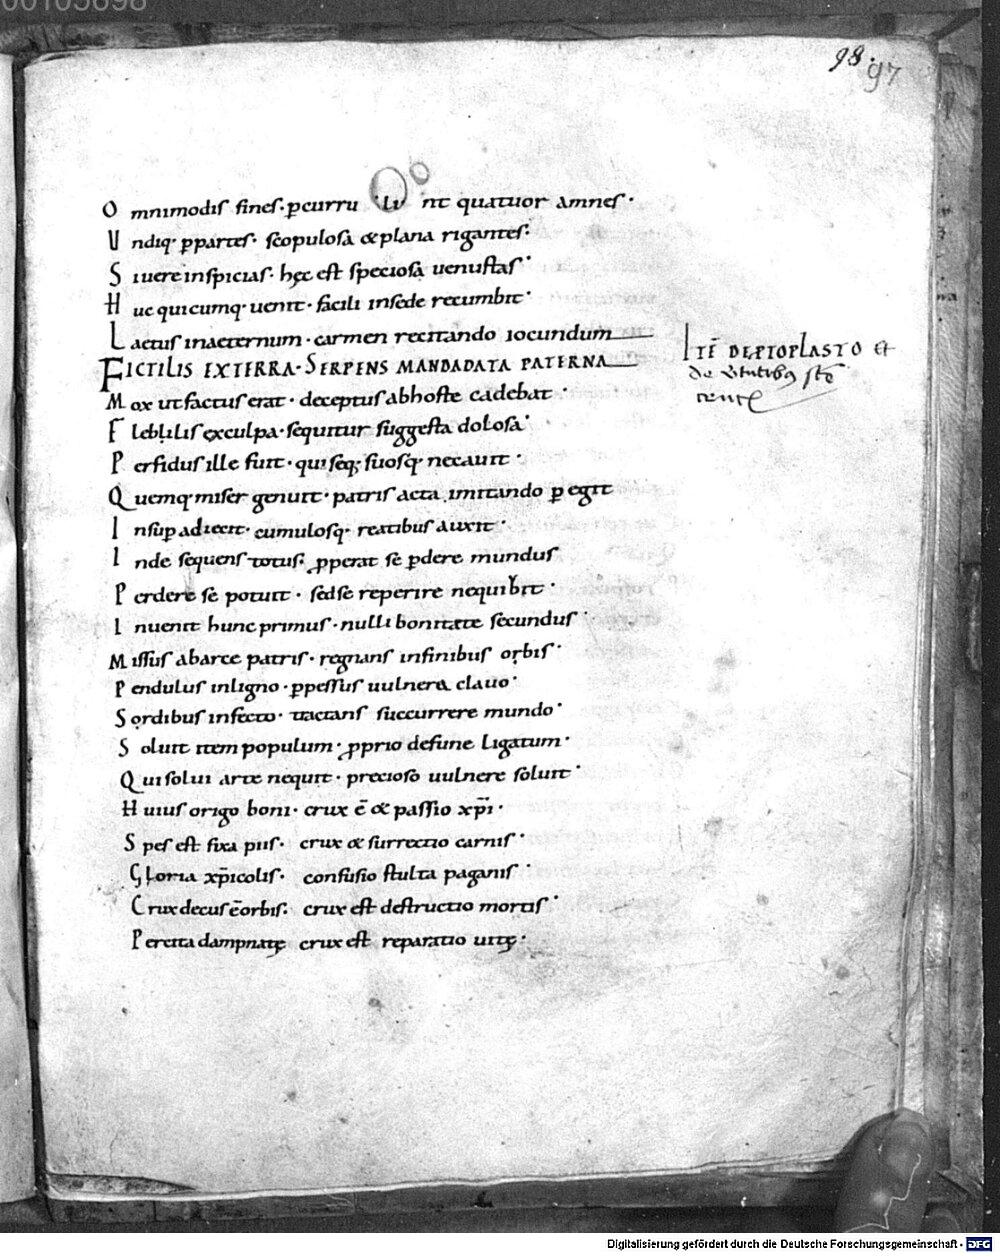 98. 97
O mnimodis fines· ꝑcurru nt quatuor amnes·
U ndiq· ꝑpartes· scopulosa &plana rigantes:
S iuere inspicias· hęc est speciosa uenustas·
H uc quicumq· uenit· facili insede recumbit·
L aetus inaeternum· carmen recitando iocundum
FICTILIS EXTERRA· SERPENS MANDADATA PATERNA
M ox utfactus erat· deceptus abhoste cadebat·
F leblilis exculpa· sequitur suggesta dolosa·
P erfidus ille fuit· qui seq; suosq· necauit·
Q uemq· miser genuit· patris acta imitando ꝑegit
I nsuꝑ adiecit· cumulosq· reatibus auxit·
I nde sequens totus· ꝓperat se ꝑdere mundus
P erdere se potuit· sedse reperire nequibit·
I nuenit hunc primus· nulli bonitate secundus·
M issus abarce patris· regnans infinibus orbis·
P endulus inligno· ꝑpessus uulnera clauo·
S ordibus infecto· tractans succurrere mundo·
S oluit item populum· ꝓprio defune ligatum·
Q ui solui arte nequit· precioso uulnere soluit·
H uius origo boni· crux ē & passio xp̄i·
S pes est fixa piis· crux & surrectio carnis·
G loria xp̄icolis· confusio stulta paganis·
C rux decus ē orbis· crux est destructio mortis·
P ereita dampnatę crux est reparatio uitę·
ITĒ DE PTOPLASTO et
de
Digitalisierung gefördert durch die Deutsche Forschungsgemeinschaft - DFG